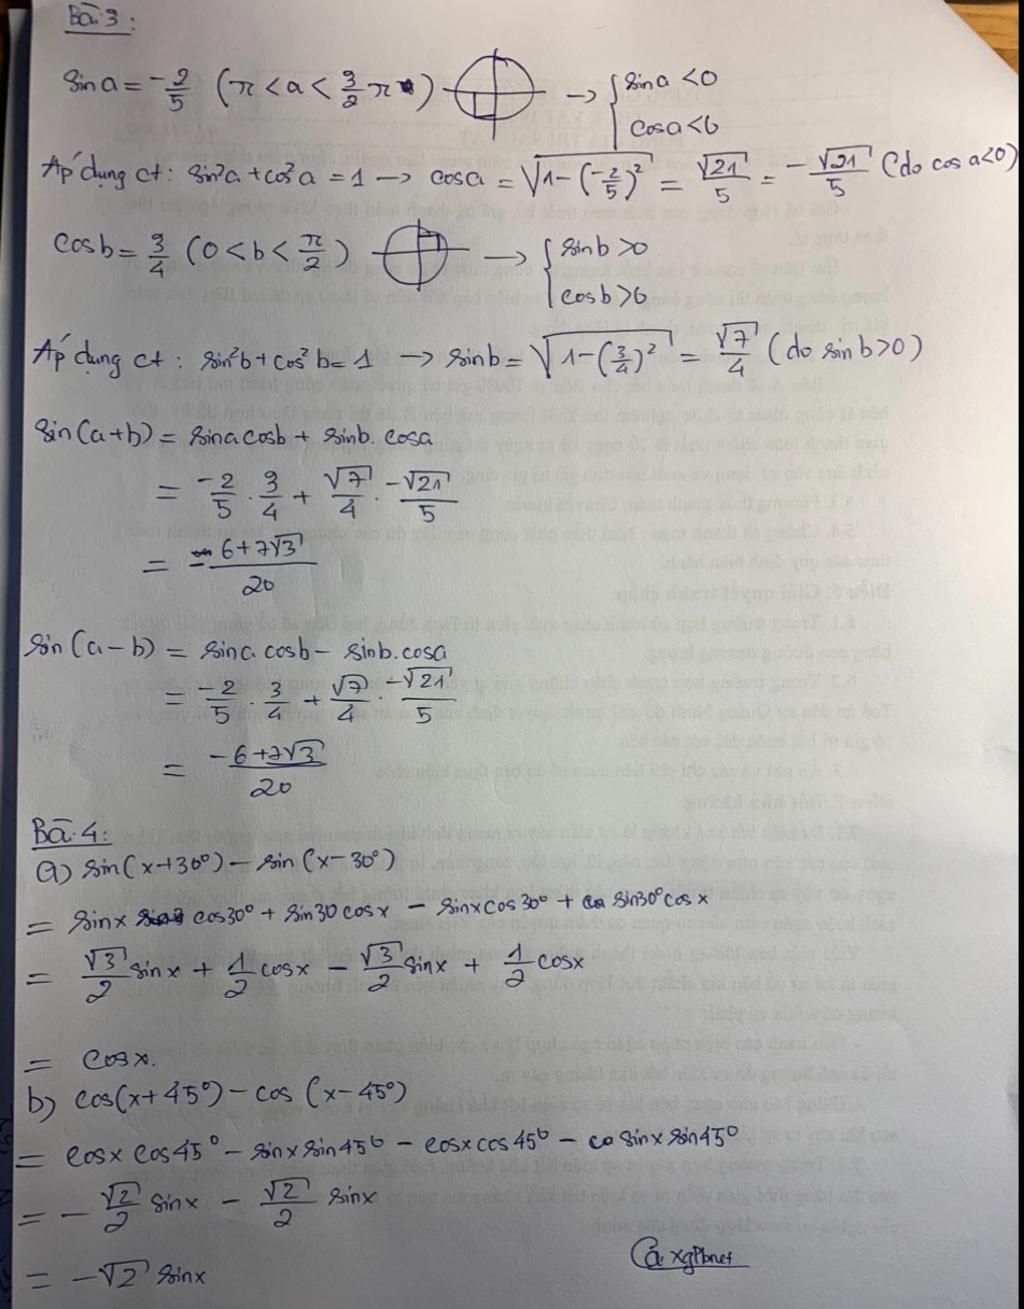 Bài 3:
sin a = -2/5 (π < a < 3/2 π) → { sin a < 0
cos a < 0
Áp dụng ct: sin²a + cos²a = 1 → cos a = √(1-(-2/5)²) = √21/5 = -√21/5 (do cos a<0)
cos b = 3/4 (0 < b < π/2) → { sin b > 0
cos b > 0
Áp dụng ct: sin²b + cos²b = 1 → sin b = √(1-(3/4)²) = √7/4 (do sin b > 0)
sin(a+b) = sin a cos b + sin b. cos a
= -2/5 . 3/4 + √7/4 . -√21/5
= -6+7√3/20
sin(a-b) = sin a cos b - sin b. cos a
= -2/5 . 3/4 + √7/4 . -√21/5
= -6+7√3/20
Bài 4:
a) sin(x+30°) - sin(x-30°)
= sin x cos30° + sin30 cos x - sin x cos30° + sin30° cos x
= √3/2 sin x + 1/2 cos x - √3/2 sin x + 1/2 cos x
= cos x.
b) cos(x+45°) - cos (x-45°)
= cos x cos45° - sin x sin45° - cos x cos45° - co sin x sin45°
= - √2/2 sin x - √2/2 sin x
= -√2 sin x